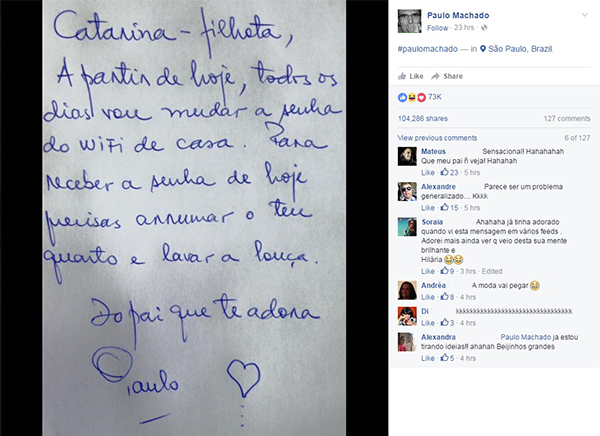 Catarina - filhota,
A partir de hoje, todos os
dias vou mudar a senha
do WiFi de casa. Para
receber a senha de hoje
precisas arrumar o teu
quarto e lavar a louça.
Do pai que te adora
Paulo
Paulo Machado
Follow · 23 hrs ·
#paulomachado — in São Paulo, Brazil.
Like Share
73K
104,286 shares 127 comments
View previous comments 6 of 127
Mateus Sensacional! Hahahahah
Que meu pai ñ veja! Hahahah
Like · 23 · 5 hrs
Alexandre Parece ser um problema
generalizado.... Kkkk
Like · 15 · 5 hrs
Soraia Ahahaha já tinha adorado
quando vi esta mensagem em vários feeds .
Adorei mais ainda ver q veio desta sua mente
brilhante e
Hilária
Like · 9 · 3 hrs · Edited
Andréa A moda vai pegar
Like · 8 · 4 hrs
Di kkkkkkkkkkkkkkkkkkkkkkkkkkkkkkkk
Like · 3 · 4 hrs
Alexandra Paulo Machado ja estou
tirando ideias!! ahahah Beijinhos grandes
Like · 5 · 4 hrs